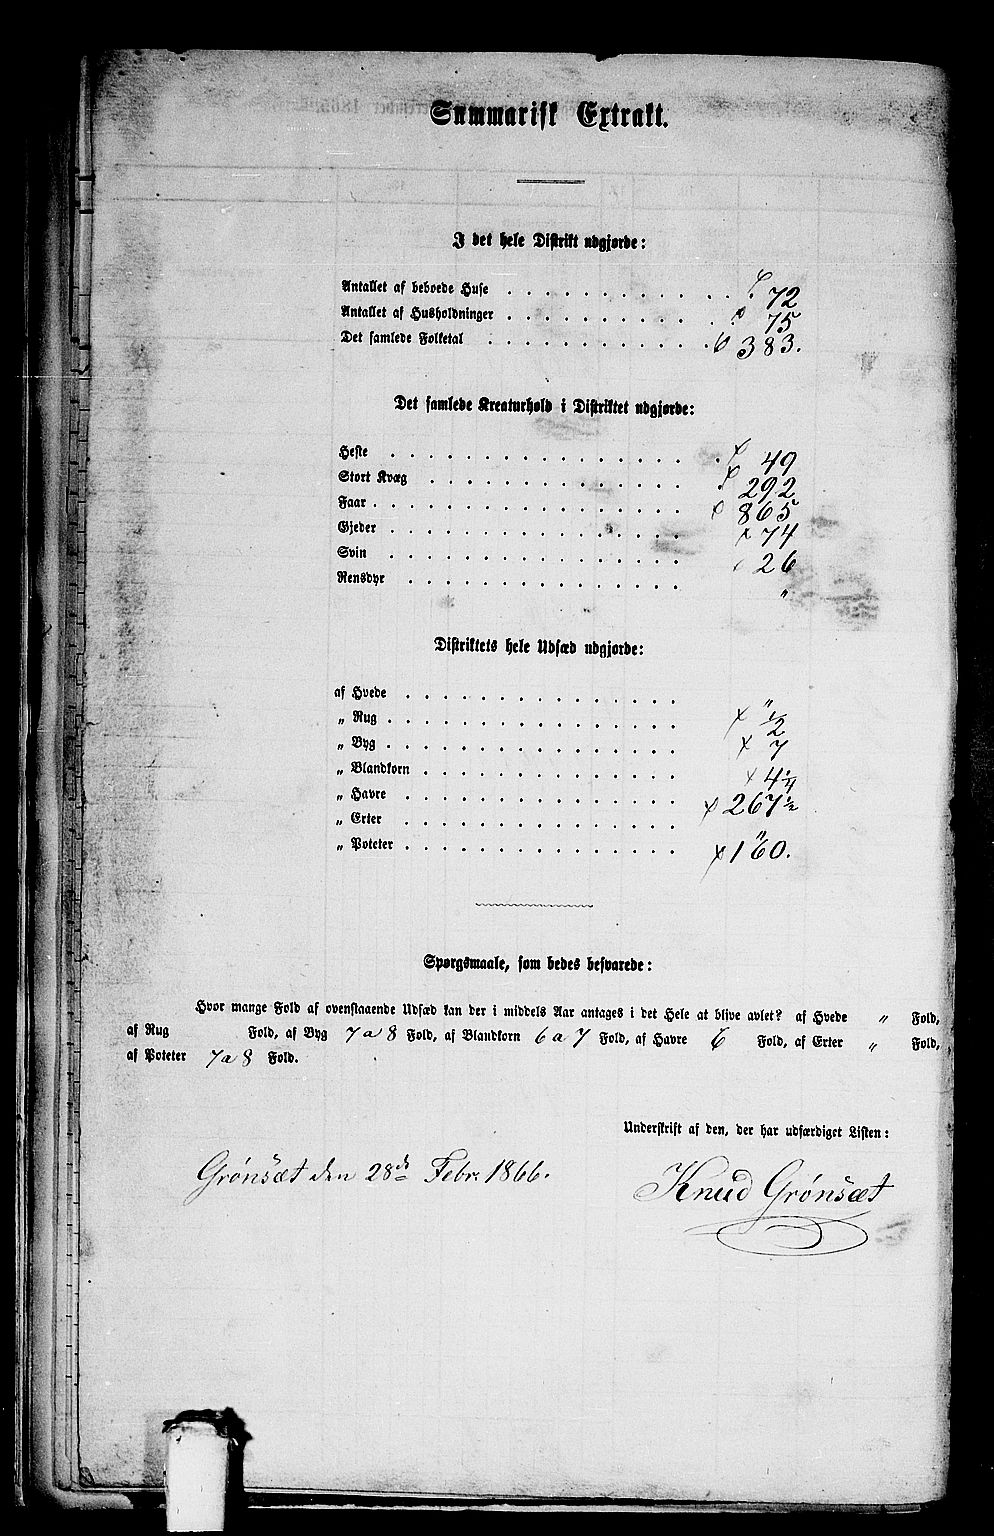 Summarisk Extrakt.
I det hele Distrikt udgjorde:
Antallet af beboede Huse . . . 72
Antallet af Husholdninger . . . 75
Det samlede Folketal . . . 383.
Det samlede Kreaturhold i Distriktet udgjorde:
Heste . . . 49
Stort Kvæg . . . 292
Faar . . . 865
Gjeder . . . 74
Svin . . . 26
Rensdyr . . . "
Distriktets hele Udsæd udgjorde:
af Hvede . . . "
" Rug . . . 1/2
" Byg . . . 7
" Blandkorn . . . 4 1/4
" Havre . . . 267 1/2
" Erter . . . "
" Poteter . . . 160.
Spørgsmaale, som bedes besvarede:
Hvor mange Fold af ovenstaaende Udsæd kan der i middels Aar antages i det Hele at blive avlet? af Hvede " Fold,
af Rug Fold, af Byg 7 a 8 Fold, af Blandkorn 6 a 7 Fold, af Havre 6 Fold, af Erter " Fold,
af Poteter 7 a 8 Fold.
Underskrift af den, der har udfærdiget Listen:
Grönsæt den 28de Febr. 1866.
Knud Grönsæt